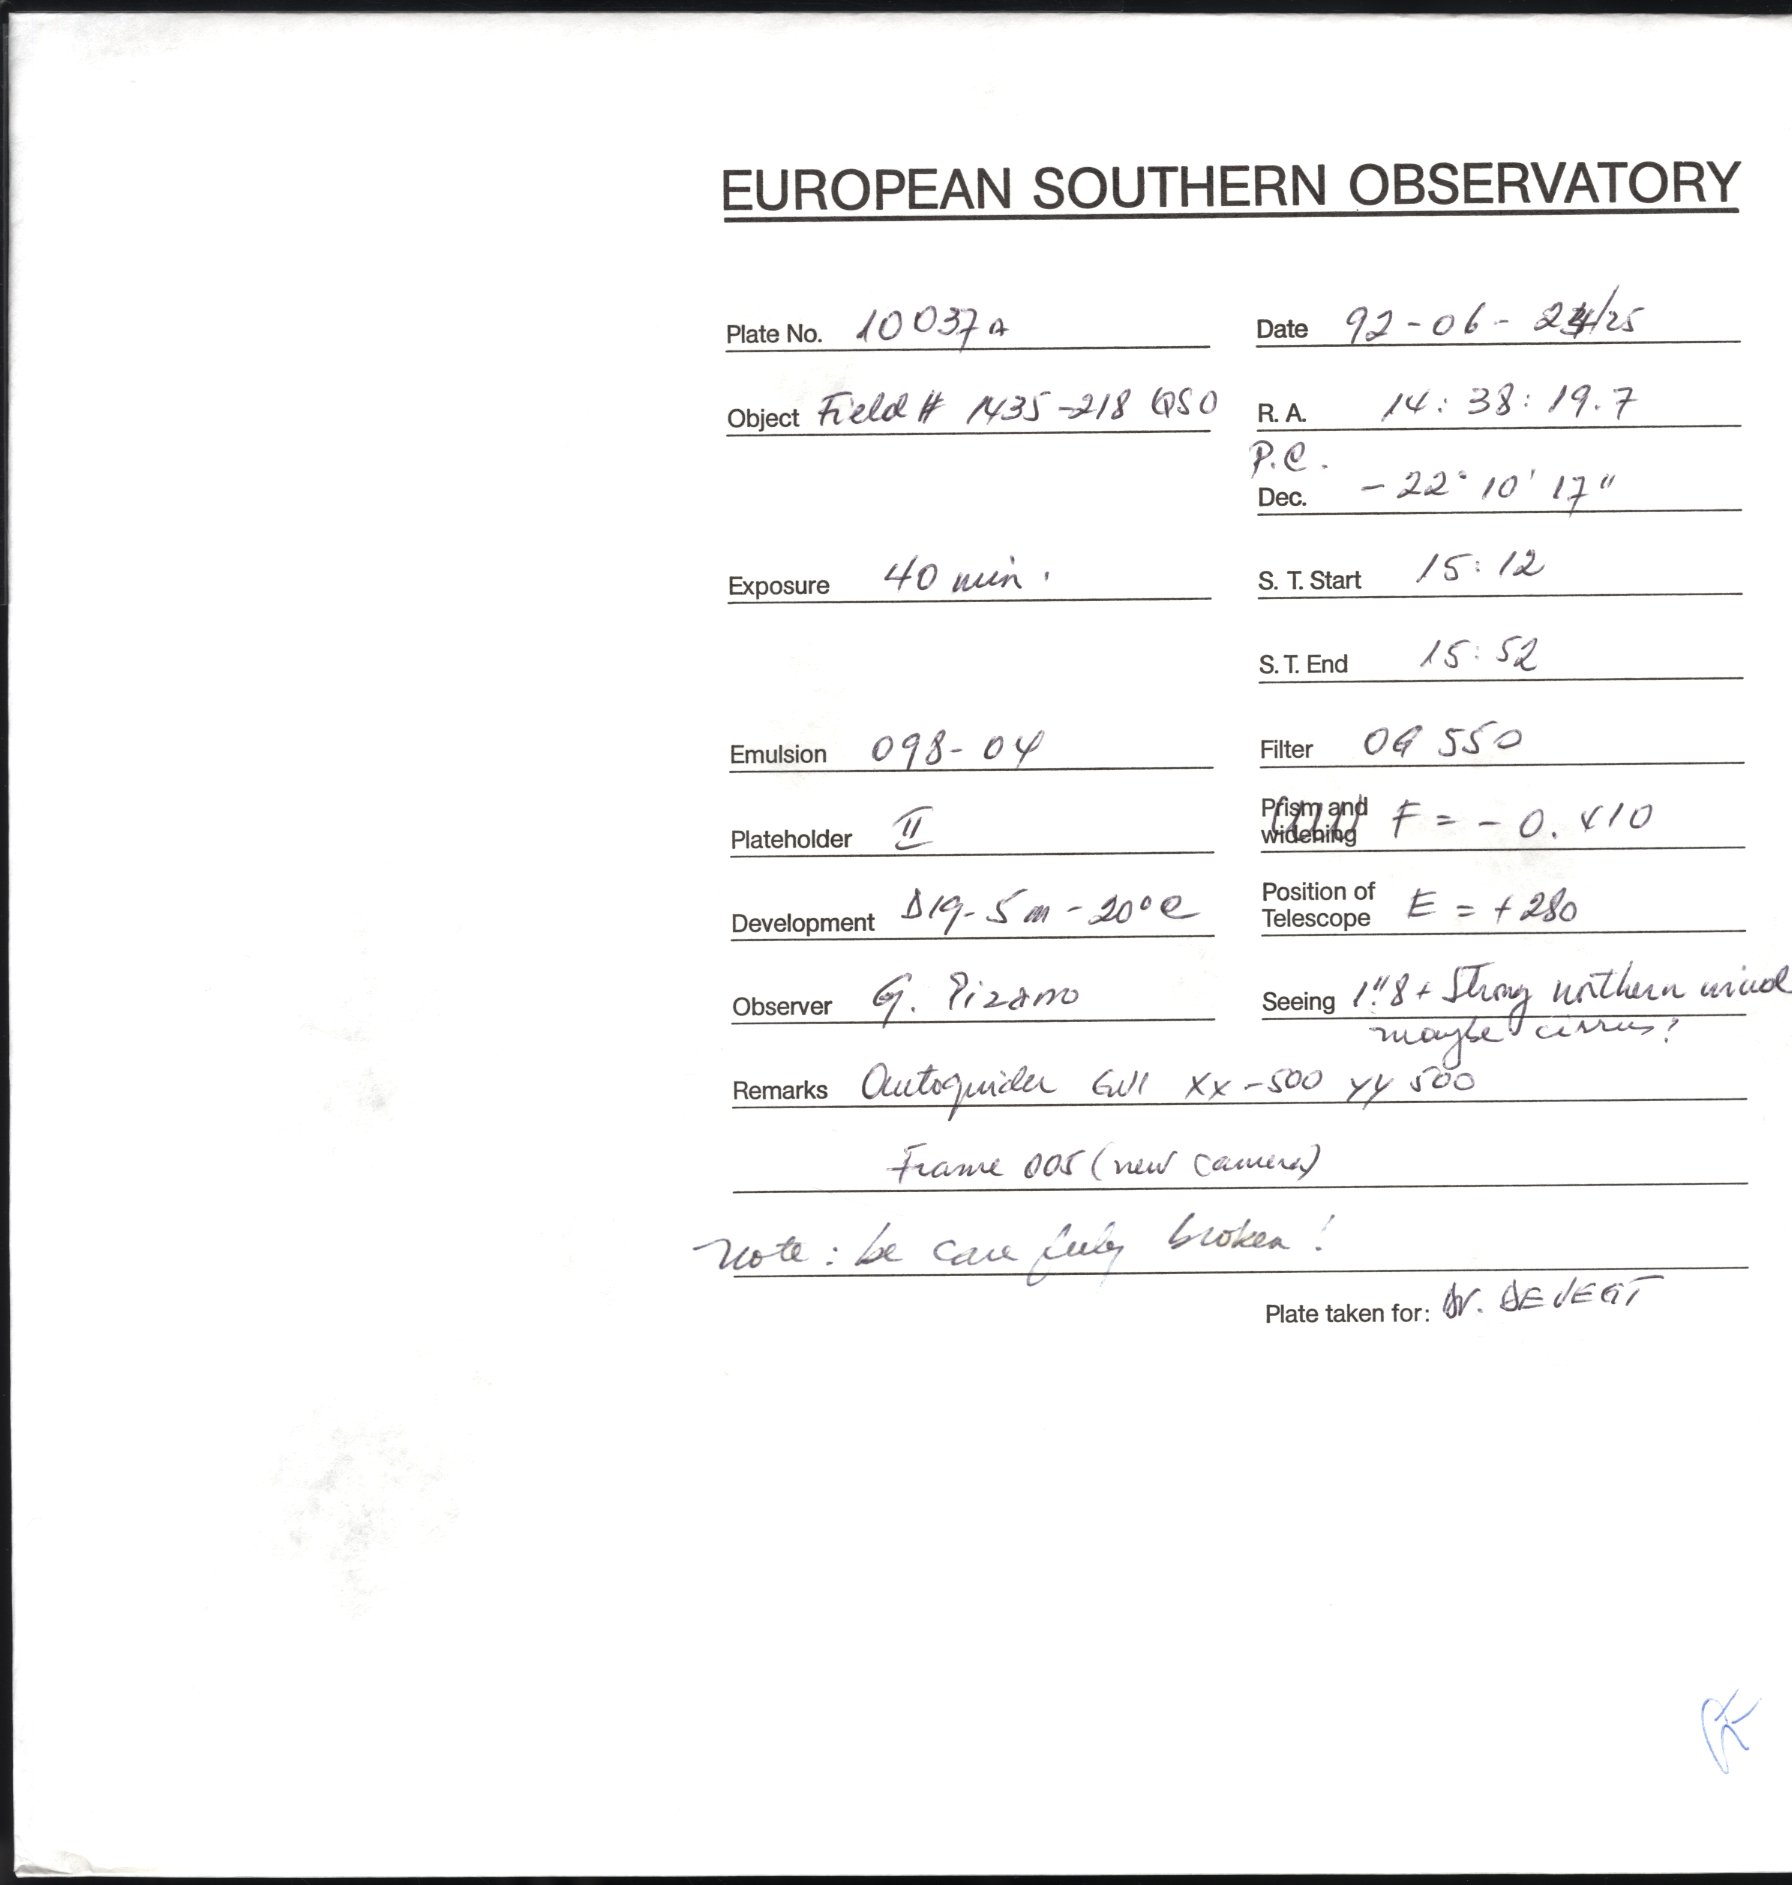 EUROPEAN SOUTHERN OBSERVATORY
Plate No. 10037A
Date 92-06-24/25
Object Field # 1435-218 QSO
R. A. 14: 38: 19.7
P.C.
Dec. -22° 10' 17"
Exposure 40 min.
S. T. Start 15: 12
S. T. End 15: 52
Emulsion 098-04
Filter OG 550
Plateholder II
Prism and widening F = - 0. 410
Development D19-5m-20°C
Position of Telescope E = +280
Observer G. Pizarro
Seeing 1"8 + Strong northern wind
maybe cirrus?
Remarks Autoguider GW XX-500 YY 500
Frame 005 (new camera)
Note: be care fully broken!
Plate taken for: Dr. DEVEGT